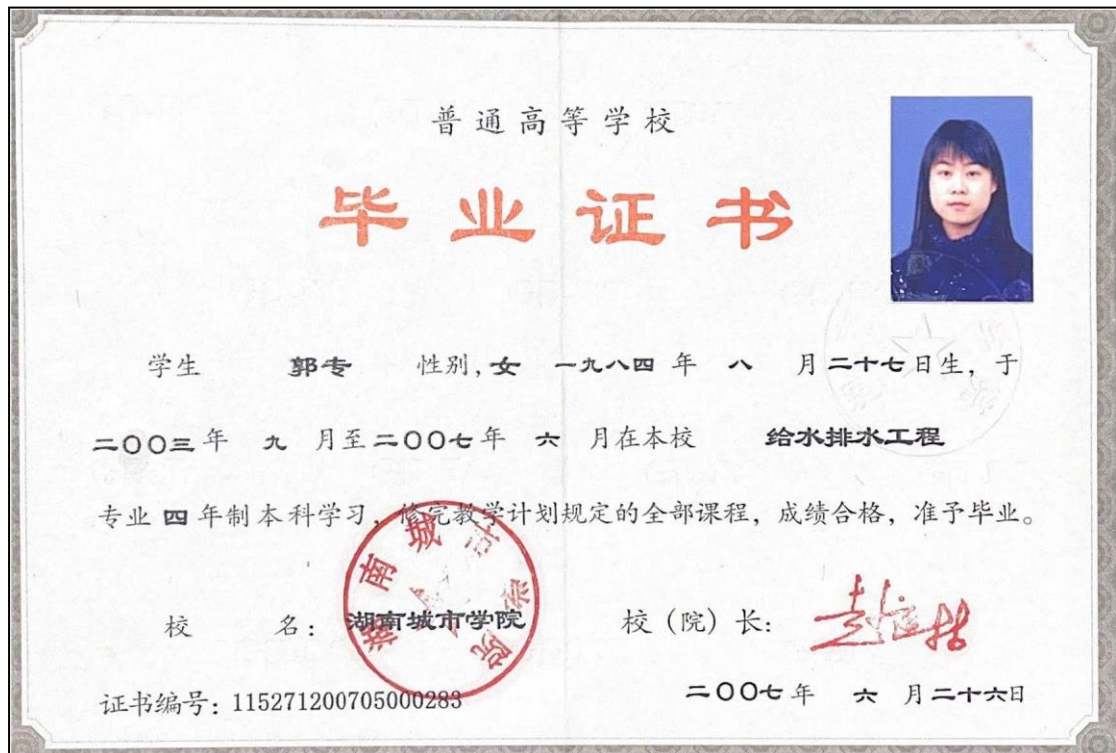 普通高等学校
毕业证书
学生 郭专 性别，女 一九八四 年 八 月 二十七日生，于
二〇〇三 年 九 月至 二〇〇七 年 六 月在本校 给水排水工程
专业 四 年制本科学习，修完教学计划规定的全部课程，成绩合格，准予毕业。
校 名： 湖南城市学院 校（院）长：
湖南城市学院
证书编号：115271200705000283 二〇〇七 年 六 月 二十六日